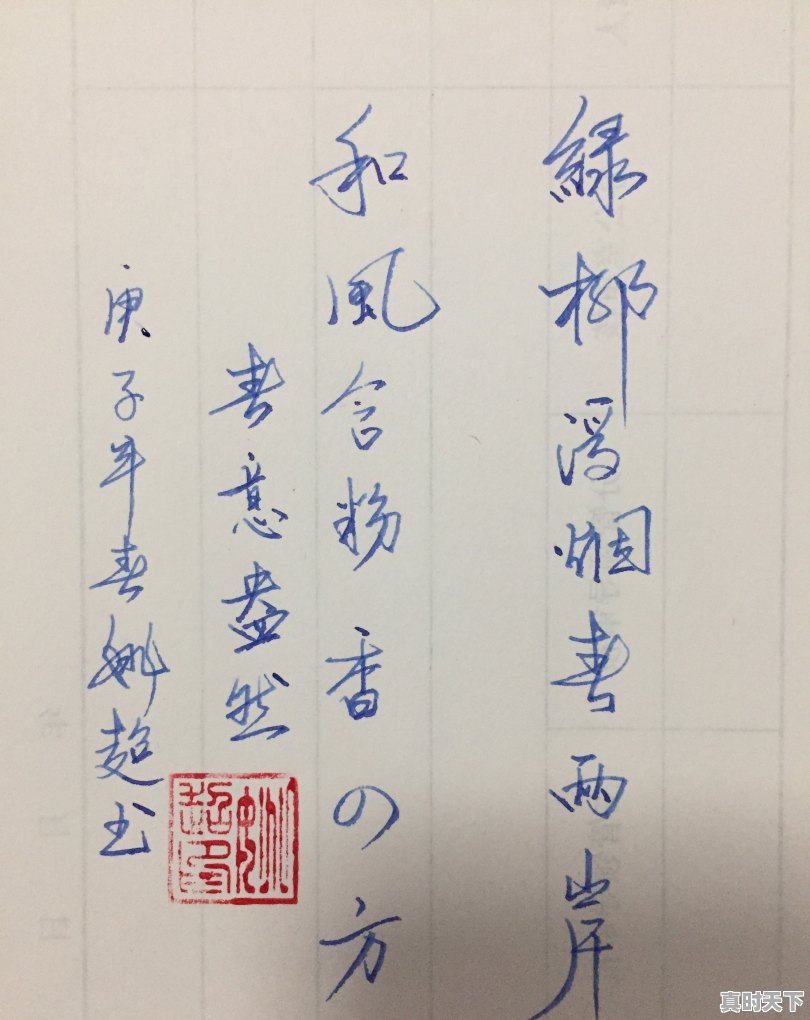 綠柳浮烟春两岸
和風含粉香の方
春意盎然
庚子年春姚超书
姚超印
真时天下